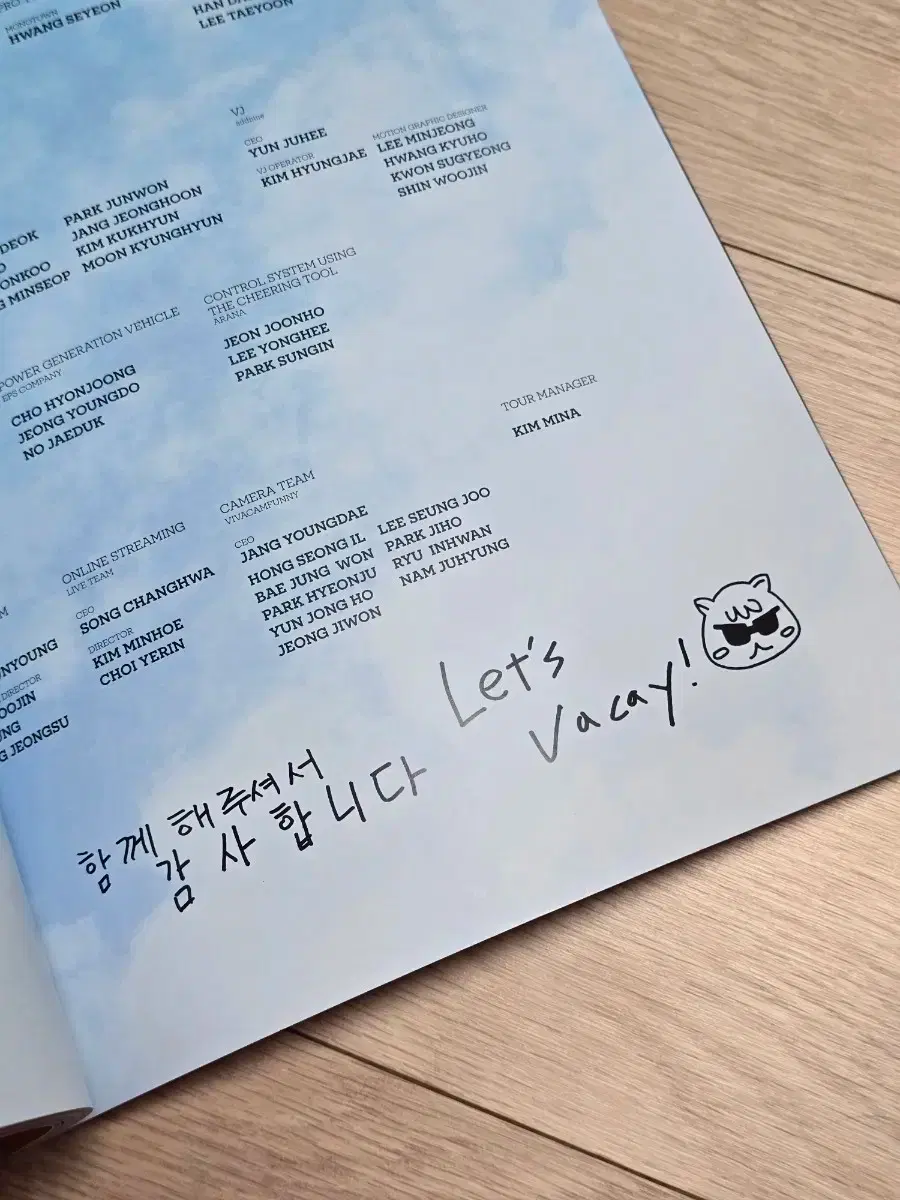 MONOTOWN
HWANG SEYEON
LEE TAEYOON
VJ
CEO
YUN JUHEE
VJ OPERATOR
KIM HYUNGJAE
MOTION GRAPHIC DESIGNER
LEE MINJEONG
HWANG KYUHO
KWON SUGYEONG
SHIN WOOJIN
PARK JUNWON
JANG JEONGHOON
KIM KUKHYUN
MOON KYUNGHYUN
MINSEOP
CONTROL SYSTEM USING
THE CHEERING TOOL
ARANA
JEON JOONHO
LEE YONGHEE
PARK SUNGIN
POWER GENERATION VEHICLE
EPS COMPANY
CHO HYONJOONG
JEONG YOUNGDO
NO JAEDUK
TOUR MANAGER
KIM MINA
CAMERA TEAM
VIVACAMFUNNY
CEO
JANG YOUNGDAE
HONG SEONG IL
BAE JUNG WON
PARK HYEONJU
YUN JONG HO
JEONG JIWON
LEE SEUNG JOO
PARK JIHO
RYU INHWAN
NAM JUHYUNG
ONLINE STREAMING
LIVE TEAM
CEO
SONG CHANGHWA
DIRECTOR
KIM MINHOE
CHOI YERIN
DIRECTOR
JEONGSU
Let's
Vacay!
함께 해주셔서
감사합니다